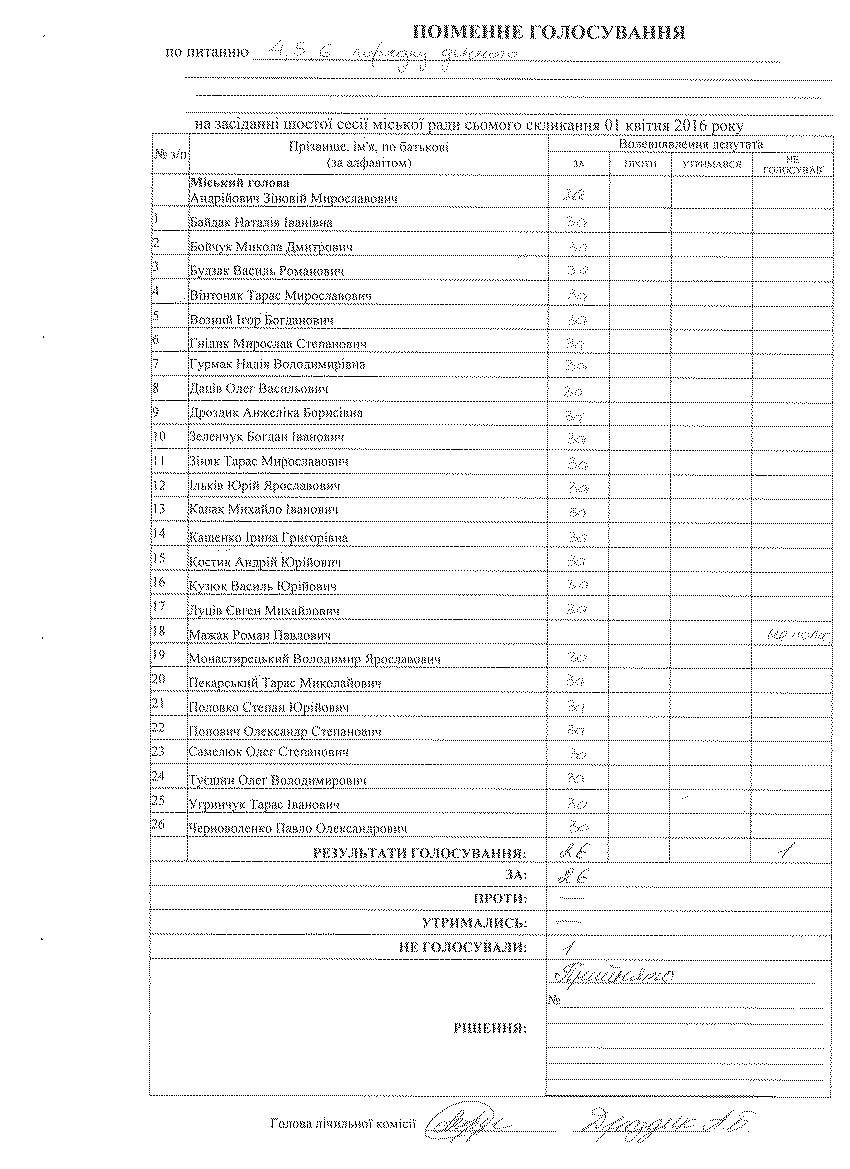 ПОІМЕННЕ ГОЛОСУВАННЯ
по питанню 4. 5. 6 порядку денного
на засіданні шостої сесії міської ради сьомого скликання 01 квітня 2016 року
№ з/п Прізвище, ім'я, по батькові (за алфавітом) Волевиявлення депутата
ЗА ПРОТИ УТРИМАВСЯ НЕ ГОЛОСУВАВ
Міський голова
Андрійович Зіновій Мирославович за
1 Байдак Наталія Іванівна за
2 Бойчук Микола Дмитрович за
3 Будзак Василь Романович за
4 Вінтоняк Тарас Мирославович за
5 Возний Ігор Богданович за
6 Гнідик Мирослав Степанович за
7 Гурмак Надія Володимирівна за
8 Даців Олег Васильович за
9 Дроздик Анжеліка Борисівна за
10 Зеленчук Богдан Іванович за
11 Зіняк Тарас Мирославович за
12 Ільків Юрій Ярославович за
13 Капак Михайло Іванович за
14 Кащенко Ірина Григорівна за
15 Костик Андрій Юрійович за
16 Кузюк Василь Юрійович за
17 Луців Євген Михайлович за
18 Мажак Роман Павлович не голос
19 Монастирецький Володимир Ярославович за
20 Пекарський Тарас Миколайович за
21 Половко Степан Юрійович за
22 Попович Олександр Степанович за
23 Самелюк Олег Степанович за
24 Олег Володимирович за
25 Угринчук Тарас Іванович за
26 Черноволенко Павло Олександрович за
РЕЗУЛЬТАТИ ГОЛОСУВАННЯ: 26 1
ЗА: 26
ПРОТИ: —
УТРИМАЛИСЬ: —
НЕ ГОЛОСУВАЛИ: 1
Прийнято
№
РІШЕННЯ:
Голова лічильної комісії Дроздик А.Б.